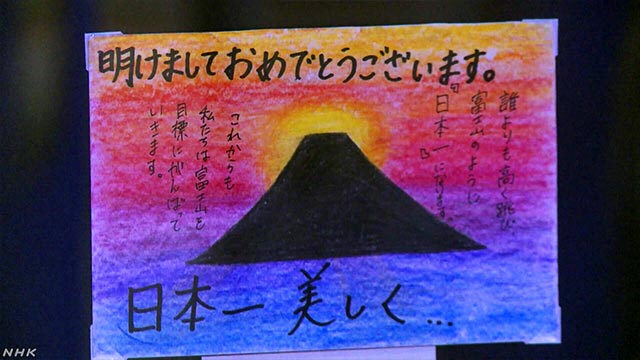 明けましておめでとうございます。
誰よりも高く跳び
富士山のように
「日本一」になります。
これからも
私たちは
目標にがんばって
いきます。
日本一 美しく...
NHK